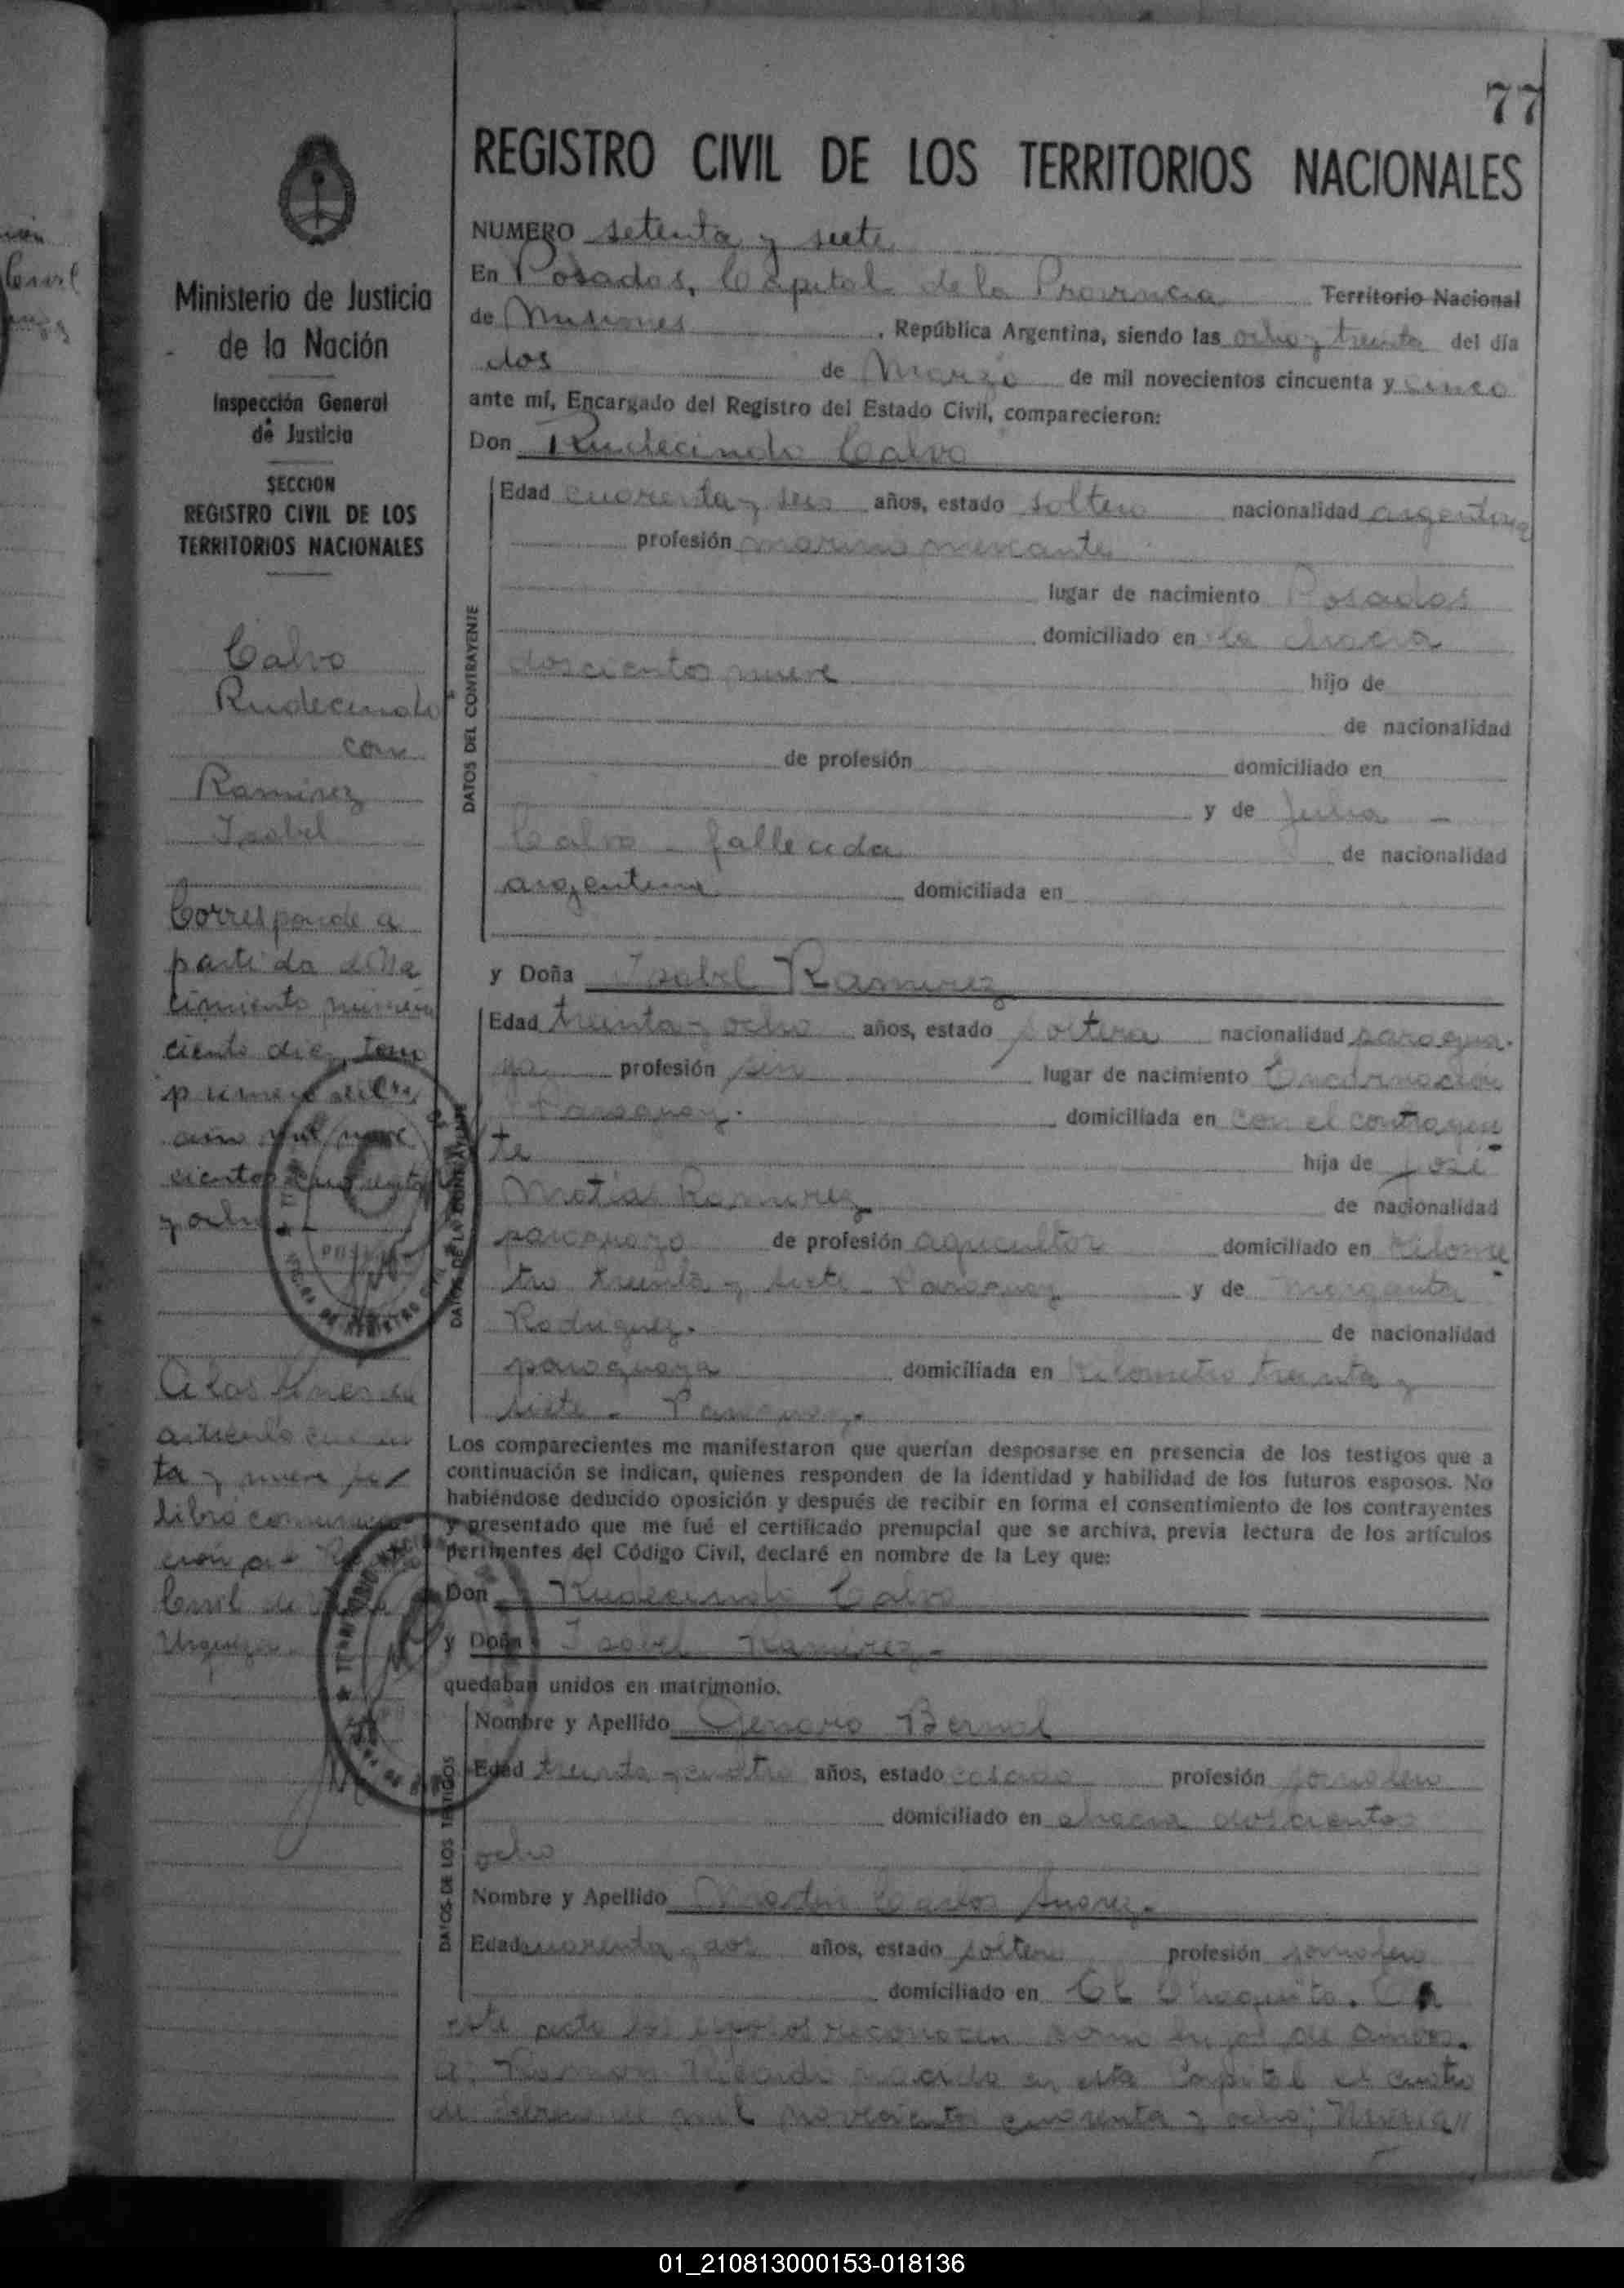 77
REGISTRO CIVIL DE LOS TERRITORIOS NACIONALES
Ministerio de Justicia
de la Nación
Inspección General
de Justicia
SECCION
REGISTRO CIVIL DE LOS
TERRITORIOS NACIONALES
Calvo
Rudecindo
con
Ramirez
Isabel
Corresponde a
partida de Na
cimiento número
ciento diez, tomo
primero del
año mil nove
cientos cuarenta
y ocho
A los fines del
artículo
ta y nueve
libró comunica
ción al Registro
Civil de
Urquiza.
NUMERO setenta y siete
En Posadas, Capital de la Provincia Territorio Nacional
de Misiones , República Argentina, siendo las ocho y treinta del día
dos de Marzo de mil novecientos cincuenta y cinco
ante mí, Encargado del Registro del Estado Civil, comparecieron:
Don Rudecindo Calvo
DATOS DEL CONTRAYENTE
Edad cuarenta y seis años, estado soltero nacionalidad argentina
profesión marino mercante
lugar de nacimiento Posadas
domiciliado en la chacra
doscientos nueve hijo de
de nacionalidad
de profesión domiciliado en
y de Julia -
Calvo - fallecida de nacionalidad
argentina domiciliada en
y Doña Isabel Ramirez
DATOS DE LA CONTRAYENTE
Edad treinta y ocho años, estado soltera nacionalidad paragua-
ya profesión sin lugar de nacimiento Encarnación
Paraguay. domiciliada en con el contrayen
te hija de José
Matías Ramirez de nacionalidad
paraguayo de profesión agricultor domiciliado en Kilome
tro treinta y siete - Paraguay y de Margarita
Rodriguez. de nacionalidad
paraguaya domiciliada en Kilometro treinta y
siete - Paraguay.
Los comparecientes me manifestaron que querían desposarse en presencia de los testigos que a
continuación se indican, quienes responden de la identidad y habilidad de los futuros esposos. No
habiéndose deducido oposición y después de recibir en forma el consentimiento de los contrayentes
y presentado que me fué el certificado prenupcial que se archiva, previa lectura de los artículos
pertinentes del Código Civil, declaré en nombre de la Ley que:
Don Rudecindo Calvo
y Doña Isabel Ramirez -
quedaban unidos en matrimonio.
DATOS DE LOS TESTIGOS
Nombre y Apellido Genaro Bernal
Edad treinta y cuatro años, estado casado profesión jornalero
domiciliado en chacra doscientos
ocho
Nombre y Apellido Carlos Suarez.
Edad cuarenta y dos años, estado soltero profesión jornalero
domiciliado en El Chaquito. En
este acto los esposos reconocen como hijos de ambos.
a: Ramon Ricardo nacido en esta Capital el cuatro
de Febrero de mil novecientos cuarenta y ocho;
01_210813000153-018136